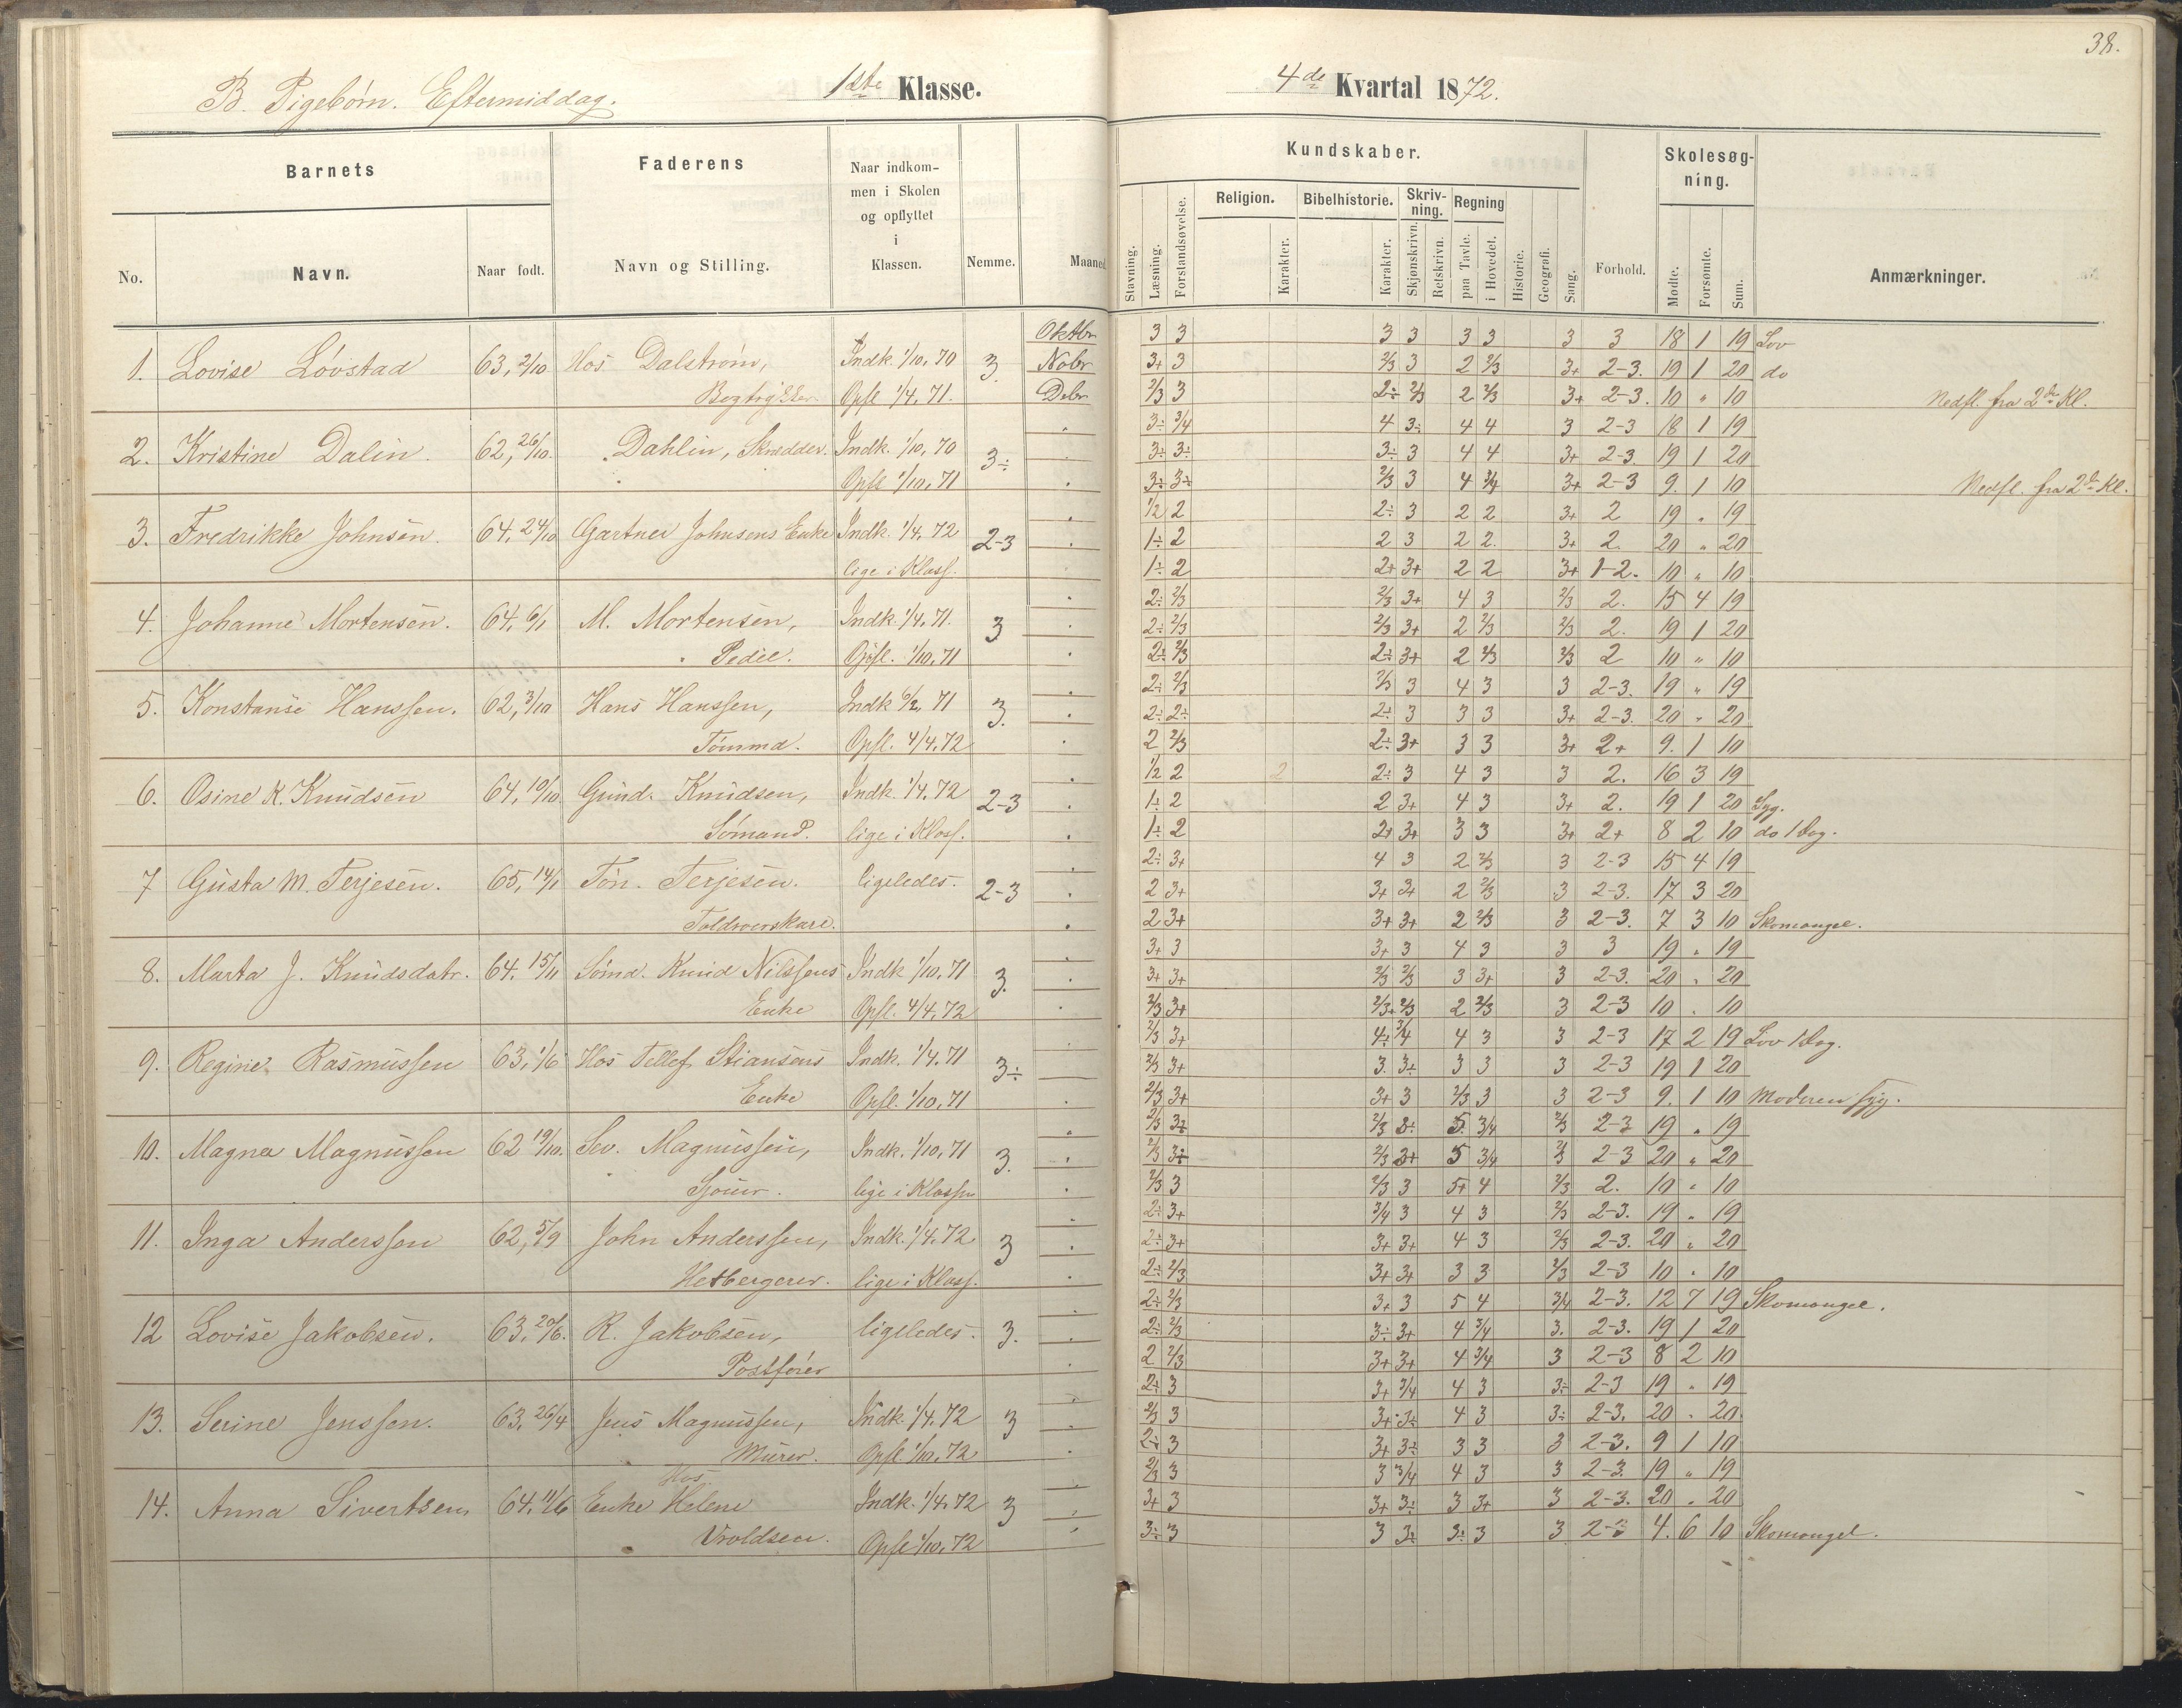 38.
B. Pigebörn. Eftermiddag. 1ste Klasse. 4de Kvartal 1872.
Barnets Faderens Naar indkommen i Skolen og opflyttet i Klassen. Nemme. Maaned Kundskaber. Forhold. Skolesøgning. Anmærkninger.
No. Navn. Naar født. Navn og Stilling.
Stavning. Læsning. Forstandsøvelse. Religion. Karakter. Bibelhistorie. Karakter. Skrivning. Skjønskrivn. Retskrivn. Regning paa Tavle. i Hovedet. Historie. Geografi. Sang. Mødte. Forsømte. Sum.
Oktbr 3 3 3 3 3 3 3 3 18 1 19 Lov
1. Lovise Lövstad 63, 2/10 Hos Dalström, Indk. 1/10, 70 3. Nobr 3+ 3 2/3 3 2 2/3 3+ 2-3. 19 1 20 do
Bogtrykker Opfl 1/4, 71. Debr 2/3 3 2÷ 2/3 2 2/3 3+ 2-3. 10 " 10 Nedfl. fra 2de Kl.
3÷ 3/4 4 3÷ 4 4 3 2-3 18 1 19
2. Kristine Dalin. 62, 26/10. Dahlin, Skrædder. Indk. 1/10, 70 3÷ 3÷ 3÷ 3÷ 3 4 4 3+ 2-3. 19 1 20
Opfl 1/10, 71 3÷ 3÷ 2/3 3 4 3/4 3+ 2-3 9. 1 10 Nedfl. fra 2de Kl.
1/2 2 2÷ 3 2 2 3+ 2 19 " 19
3. Fredrikke Johnsen. 64, 24/10 Gartner Johnsens Enke Indk. 1/4, 72 2-3 1÷ 2 2 3 2 2. 3+ 2. 20 " 20
lige i Klass. 1÷ 2 2+ 3+ 2 2 3+ 1-2. 10 " 10
2÷ 2/3 2/3 3+ 4 3 2/3 2. 15 4 19
4. Johanne Mortensen. 64, 6/1 M. Mortensen, Indk. 1/4, 71. 3 2÷ 2/3 2/3 3+ 2 2/3 2/3 2. 19 1 20
Pedel. Opfl. 1/10, 71 2÷ 2/3 2÷ 3+ 2 2/3 2/3 2 10 " 10
2÷ 2/3 2/3 3 4 3 3 2-3. 19 " 19
5. Konstanse Hanssen. 62, 3/10 Hans Hanssen, Indk 6/2, 71 3. 2÷ 2÷ 2÷ 3 3 3 3+ 2-3. 20 " 20
Tömmd. Opfl. 4/4, 72 2 2/3 2÷ 3+ 3 3 3+ 2+ 9. 1 10
1/2 2 2 2÷ 3 4 3 3 2. 16 3 19
6. Osine K. Knudsen 64, 10/10. Gund. Knudsen, Indk. 1/4, 72 2-3 1÷ 2 2 3+ 4 3 3+ 2. 19 1 20 Syg.
Sömand. lige i Klass. 1÷ 2 2+ 3+ 3 3 3+ 2+ 8 2 10 do 1 Dag.
2÷ 3+ 4 3 2 2/3 3 2-3 15 4 19
7 Gusta M. Terjesen. 65, 14/1 Tön. Terjesen. ligeledes. 2-3 2 3+ 3+ 3+ 2 2/3 3 2-3. 17 3 20
2 3+ 3+ 3+ 2 2/3 3 2-3. 7 3 10 Skomangel.
3+ 3 3+ 3 4 3 3 3 19 " 19
8. Marta J. Knudsdatr. 64, 15/11 Sömd. Knud Nilssens Indk 1/10, 71 3. 3+ 3+ 2/3 2/3 3 3+ 3 2-3. 20 " 20
Enke Opfl. 4/4, 72 2/3 3+ 2/3+ 2/3 2 2/3 3 2-3 10 . 10
2/3 3+ 4÷ 3/4 4 3 3 2-3 17 2 19 Lov 1 Dag.
9. Regine Rasmussen 63, 1/6 Hos Tellef Stiansens Indk. 1/4, 71 3÷ 2/3 3+ 3. 3+ 3 3 3 2-3 19 1 20
Enke Opfl. 1/10, 71 2/3 3+ 3+ 3 2/3 3 3 2-3 9. 1 10 Moderen syg.
2/3 3÷ 2/3 3÷ 5. 3/4 2/3 2-3 19 " 19
10. Magna Magnussen 62 19/10. Sev. Magnussen, Indk. 1/10, 71 3. 2/3 3÷ 2/3 3+ 5 3/4 2/3 2-3 20 " 20
lige i Klassen 2/3 3 2/3 3 5+ 4 2/3 2. 10 " 10
2÷ 3+ 3/4 3 4 3 2/3 2-3. 19 " 19
11. Inga Anderssen 62, 5/9 John Anderssen, Indk. 1/4, 72 3 2÷ 3+ 3+ 3+ 4 3 2/3 2-3. 20 " 20
lige i Klass. 2÷ 2/3 3+ 3+ 3 3 2/3 2-3 10 " 10
2÷ 2/3 3+ 3 5 4 3/4 2-3. 12 7 19 Skomangel.
12 Lovise Jakobsen. 63, 20/6. R. Jakobsen, ligeledes. 3. 2÷ 2/3 3÷ 3+ 4 3/4 3. 2-3. 19 1 20
Postförer 2 2/3 3+ 3+ 4 3/4 3 2-3 8 2 10
2÷ 3 3+ 3/4 4 3 3÷ 2-3 19 " 19
13. Serine Jenssen. 63, 26/4 Jens Magnussen, Indk. 1/4, 72 3 2/3 3 3+ 3÷ 4 3 3÷ 2-3. 20 . 20
Murer. Opfl. 1/10, 72 2÷ 3 3+ 3÷ 3 3 3 2-3. 9 1 10
Hos 2/3 3 3 3/4 4 3 3 2-3. 19 " 19
14. Anna Sivertsen 64, 11/6 Enke Helene Indk. 1/4, 72 3 3+ 3 3+ 3÷ 3 3+ 3 2-3. 20 . 20
Vroldsen. Opfl 1/10, 72 3÷ 3 3 3÷ 3÷ 3 3 2-3 4. 6 10 Skomangel.